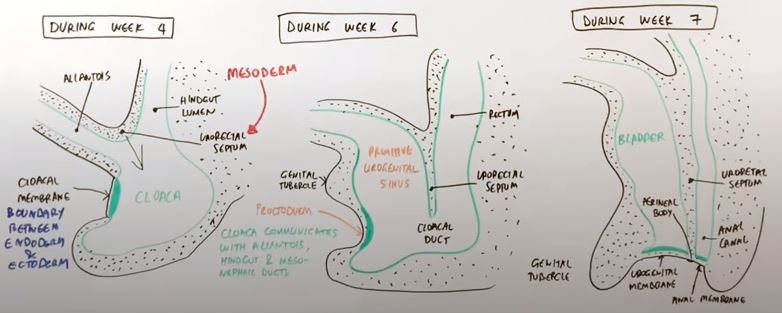 DURING WEEK 4
ALLANTOIS
HINDGUT
LUMEN
URORECTAL
SEPTUM
MESODERM
CLOACAL
MEMBRANE
BOUNDARY
BETWEEN
ENDODERM
&
ECTODERM
CLOACA
DURING WEEK 6
GENITAL
TUBERCLE
PRIMITIVE
UROGENITAL
SINUS
RECTUM
URORECTAL
SEPTUM
PROCTODEUM
CLOACA COMMUNICATES
WITH ALLANTOIS,
HINDGUT & MESO-
NEPHRIC DUCTS
CLOACAL
DUCT
DURING WEEK 7
BLADDER
URORECTAL
SEPTUM
PERINEAL
BODY
ANAL
CANAL
GENITAL
TUBERCLE
UROGENITAL
MEMBRANE
ANAL MEMBRANE